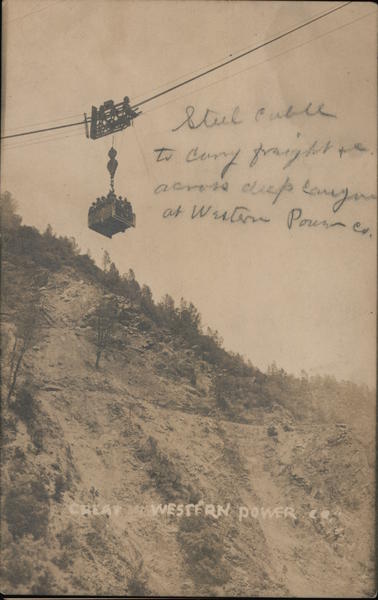 Steel Cable
to carry freight &c.
across deep canyon
at Western Power Co.
WESTERN POWER CO.